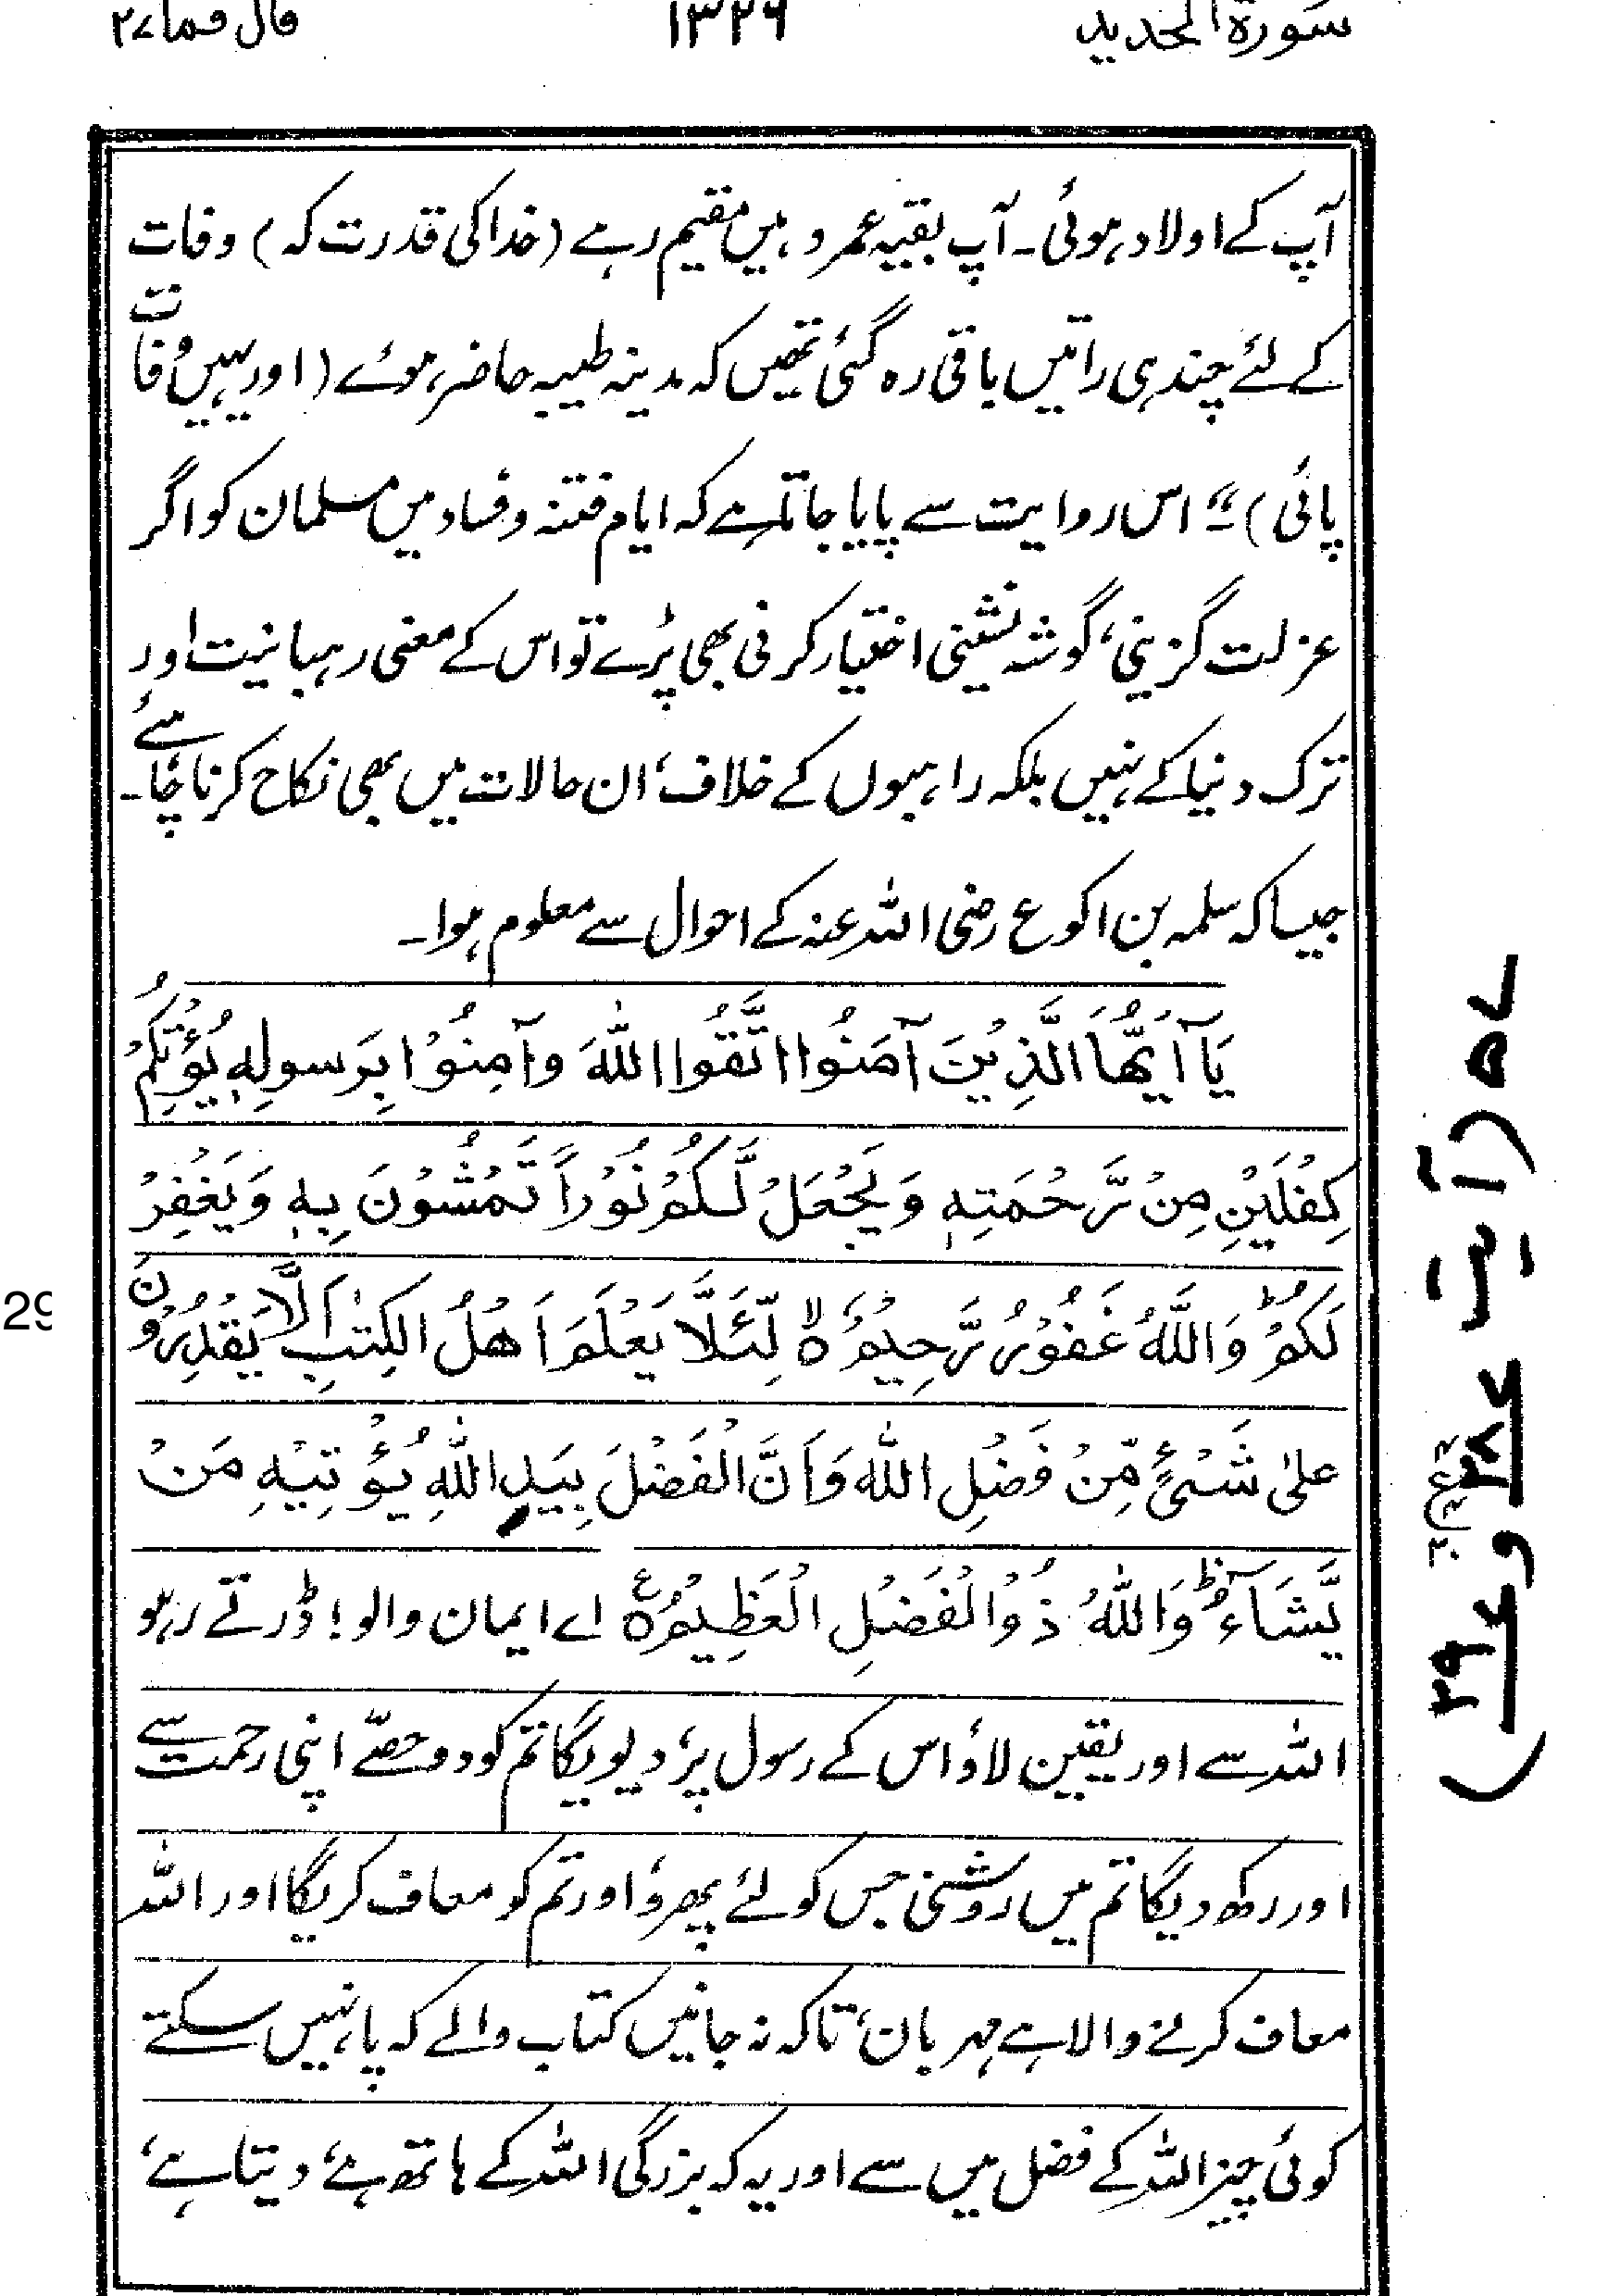 سورة الحدید ۱۳۲۶ قال فما ۲۷
آپ کے اولاد ہوئی۔ آپ بقیہ عمر وہیں مقیم رہے (خدا کی قدرت کہ) وفات
کے لئے چند ہی راتیں باقی رہ گئی تھیں کہ مدینہ طیبہ حاضر ہوئے (اور یہیں وفات
پائی)“ اس روایت سے پایا جاتا ہے کہ ایام فتنہ و فساد میں مسلمان کو اگر
عزلت گزینی، گوشہ نشینی اختیار کرنی بھی پڑے تو اس کے معنی رہبانیت اور
ترک دنیا کے نہیں بلکہ راہبوں کے خلاف، ان حالات میں بھی نکاح کرنا چاہئے۔
جیسا کہ سلمہ بن اکوع رضی اللہ عنہ کے احوال سے معلوم ہوا۔
یَآ اَیُّهَا الَّذِیْنَ آمَنُوا اتَّقُوا اللّٰهَ وآمِنُوْا بِرَسولِهٖ یُؤْتِکُمْ
کِفْلَیْنِ مِنْ رَّحْمَتِهٖ وَیَجْعَلْ لَّکُمْ نُوْراً تَمْشُوْنَ بِهٖ وَیَغْفِرْ
لَکُمْ ؕ وَاللّٰهُ غَفُوْرٌ رَّحِیْمٌ ۙ لِّئَلَّا یَعْلَمَ اَهْلُ الکِتٰبِ اَلَّا یَقْدِرُوْنَ
علیٰ شَیْءٍ مِّنْ فَضْلِ اللّٰه وَاَنَّ الْفَضْلَ بِیَدِ اللّٰهِ یُؤْتِیْهِ مَنْ
یَّشَآءُ ؕ وَاللّٰهُ ذُوْالْفَضْلِ الْعَظِیْمِ ۠ اے ایمان والو! ڈرتے رہو
اللہ سے اور یقین لاؤ اس کے رسول پر، دیویگا تم کو دو حصّے اپنی رحمت سے
اور رکھ دیگا تم میں روشنی جس کو لئے پھرو، اور تم کو معاف کریگا اور اللہ
معاف کرنے والا ہے مہربان، تاکہ نہ جانیں کتاب والے کہ پا نہیں سکتے
کوئی چیز اللہ کے فضل میں سے اور یہ کہ بزرگی اللہ کے ہاتھ ہے، دیتا ہے،
۵۷ (آیت ۲۸ و ۲۹)
29